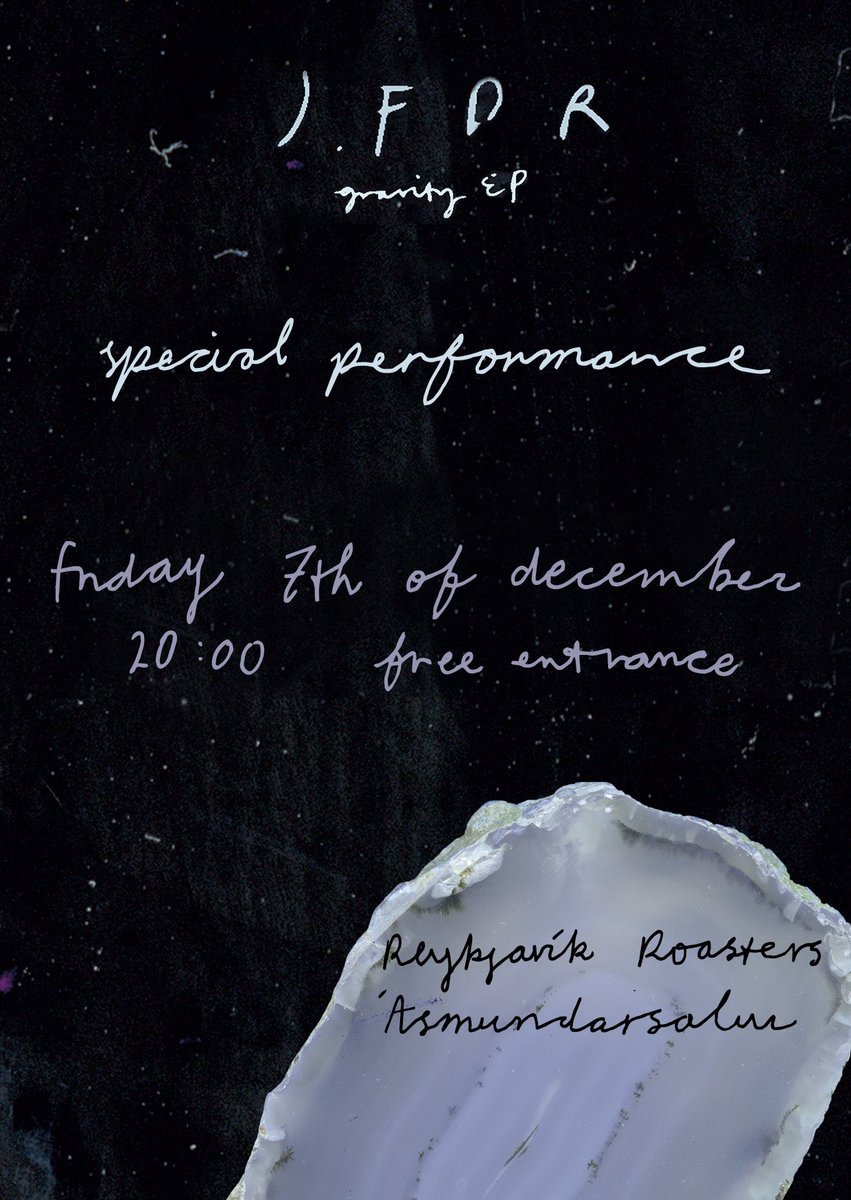 J.FDR
gravity EP
special performance
friday 7th of december
20:00 free entrance
Reykjavík Roasters
Ásmundarsalur